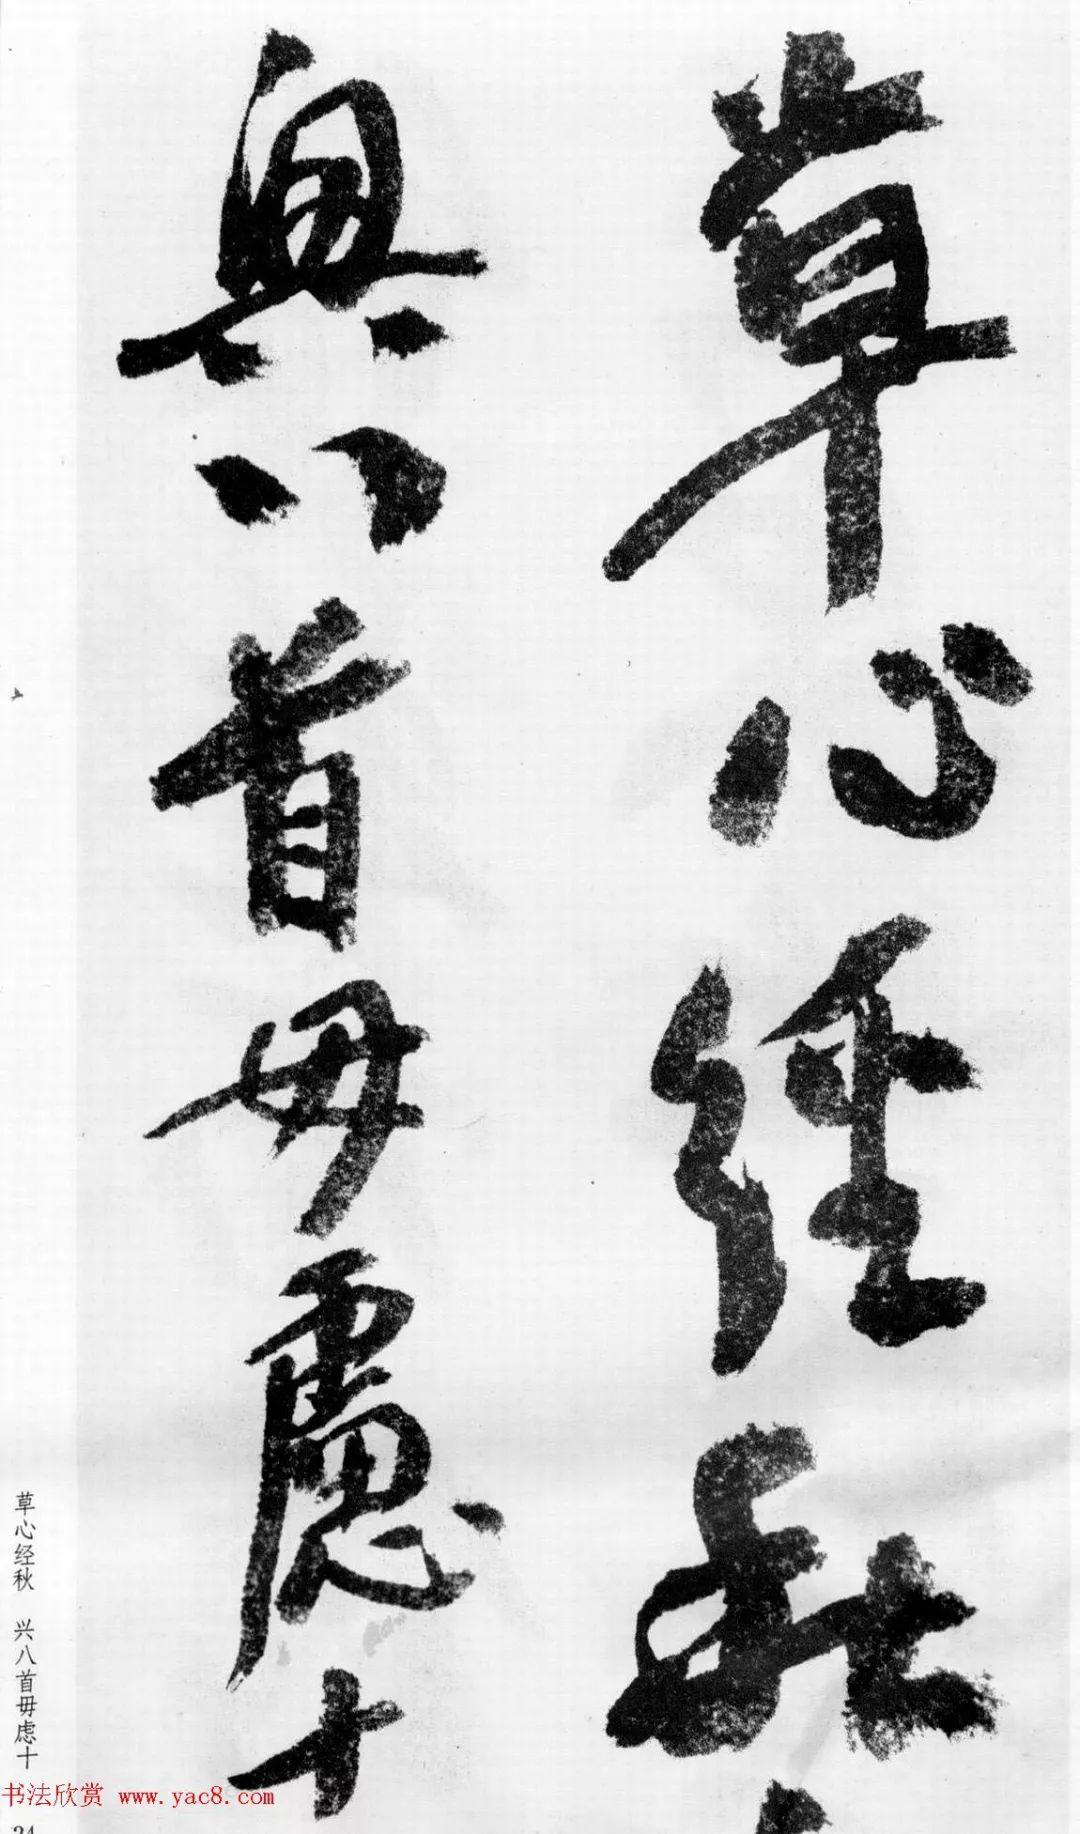 草心經秋
興八首毋慮十
草心经秋 兴八首毋虑十
书法欣赏 www.yac8.com